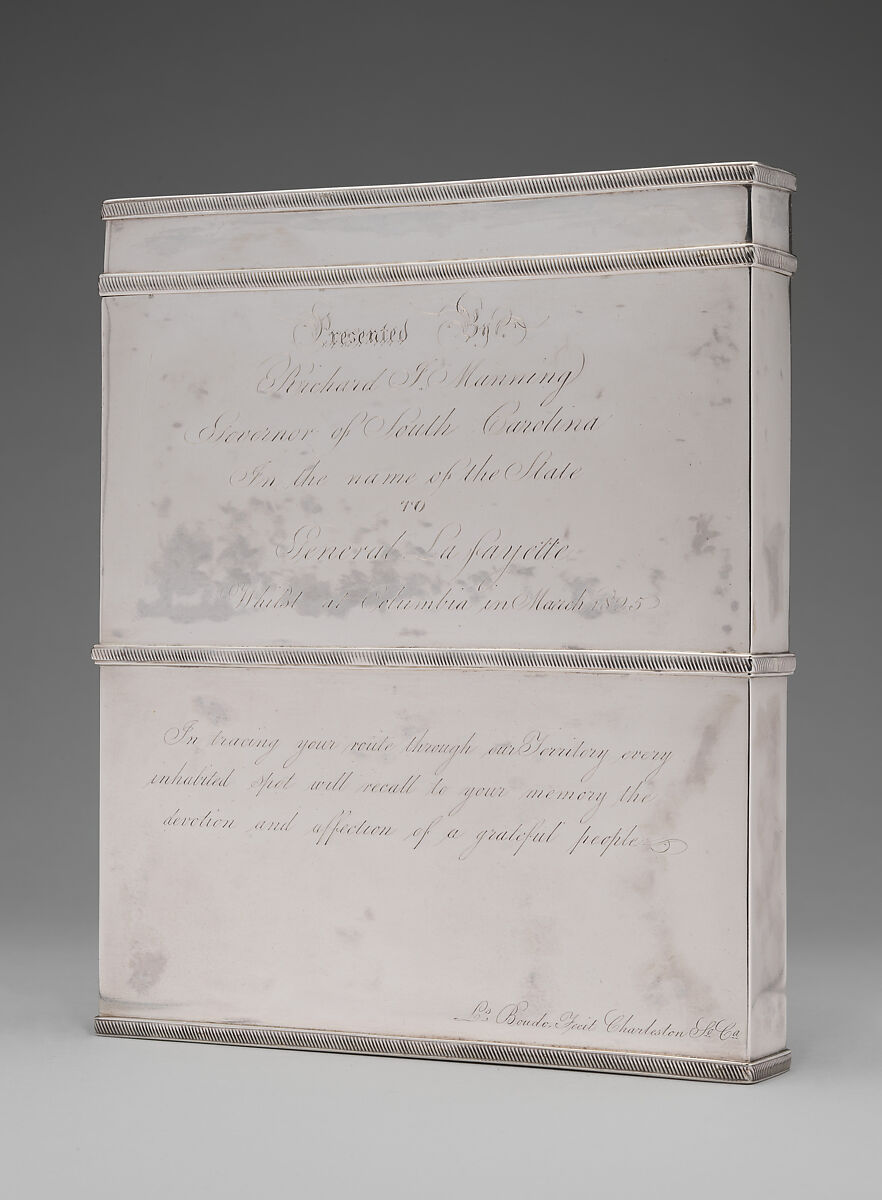 Presented By
Richard I. Manning
Governor of South Carolina
In the name of the State
TO
General La fayette
Whilst at Columbia in March 1825
In tracing your route through our Territory every
inhabited spot will recall to your memory the
devotion and affection of a grateful people
Ls Boudo, Fecit Charleston So Ca